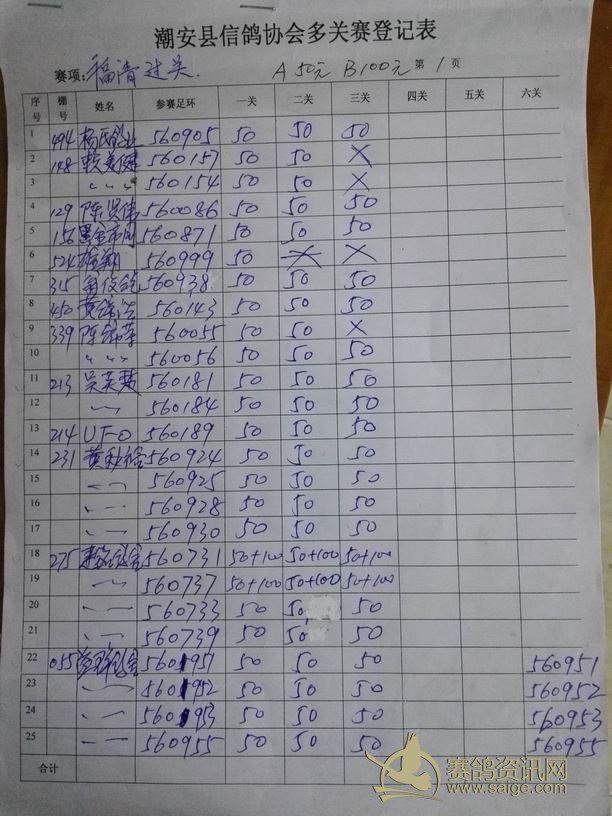 潮安县信鸽协会多关赛登记表
赛项: 福清过关. A 50元 B 100元 第 1 页
序号 棚号 姓名 参赛足环 一关 二关 三关 四关 五关 六关
1 494 杨氏鸽业 560905 50 50 50
2 148 赖美健 560157 50 50 X
3 〃 〃 560154 50 50 X
4 129 陈贤伟 560086 50 50 50
5 156 560871 50 50 50
6 524 560999 50 X X
7 315 560938 50 50 50
8 450 黄 560143 50 50 50
9 339 陈 560055 50 50 X
10 〃 〃 560056 50 50 50
11 213 吴 560181 50 50 50
12 〃 560184 50 50 50
13 214 UFO 560189 50 50 50
14 231 黄 560924 50 50 50
15 〃 560925 50 50 50
16 〃 560928 50 50 50
17 〃 560930 50 50 50
18 275 560731 50+100 50+100 50+100
19 〃 560737 50+100 50+100 50+100
20 〃 560733 50 50 50
21 〃 560739 50 50 50
22 055 560951 50 50 50 560951
23 〃 560952 50 50 50 560952
24 〃 560953 50 50 50 560953
25 〃 560955 50 50 50 560955
合计
赛鸽资讯网
www.saige.com